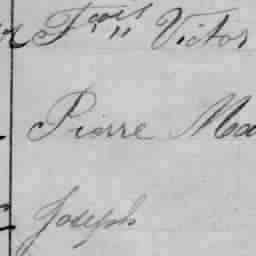 Fçois Victor
Pierre Ma
Joseph